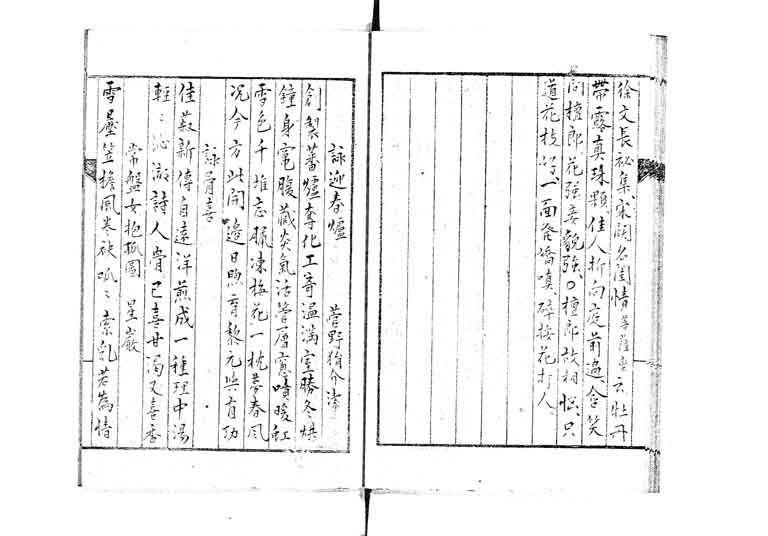 徐文長秘集宋閨名閨情菩薩蛮云牡丹
帯露真珠顆佳人折向庭前過含笑
問檀郎花強妾貌強〇檀郎故相悩只
道花枝好一面發嬌嗔碎挼花打人
詠迎春爐 菅野狷介潔
創製蕃爐奪化工奇温満室勝冬烘
鐘身竃腹蔵炎氣活管層窓噴暖虹
雪色千堆忘臘凍梅花一枕夢春風
况今方此開邊日煦育黎元與有功
詠骨喜
佳菽新傳自遠洋煎成一種理中湯
軽々沁渝詩人骨已喜甘濁又喜香
常盤女抱孤圖 星巌
雪壓笠檐風巻袂呱々索乳若為情